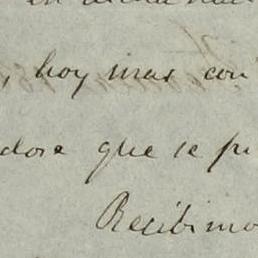 , hoy mas con
dose que se pu
Recibimo